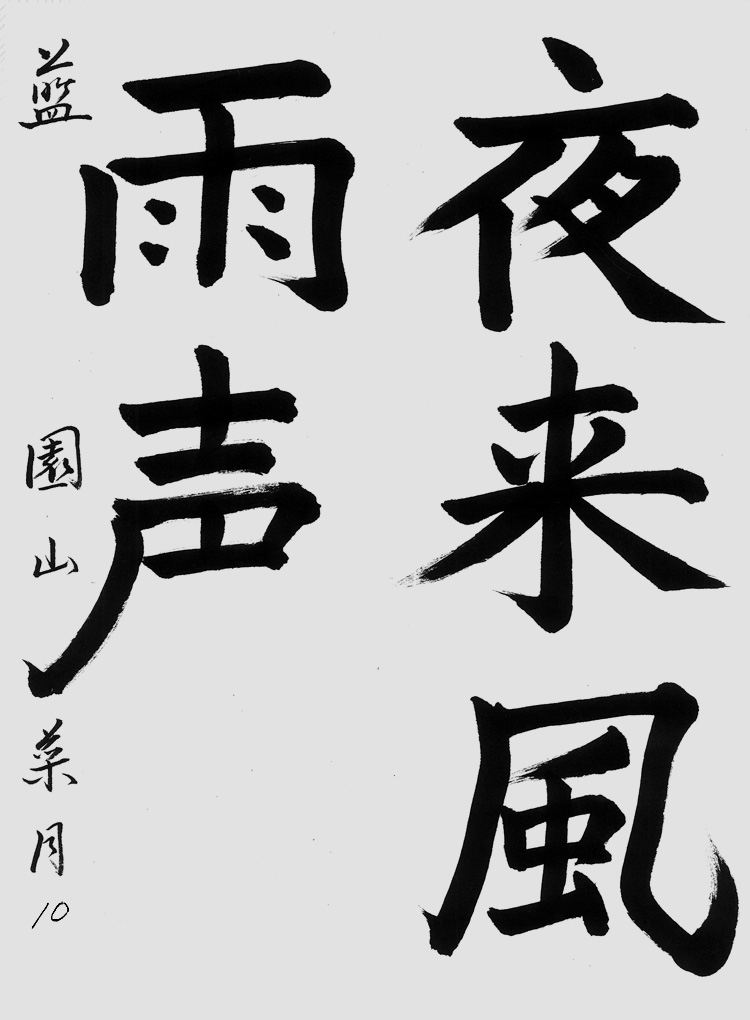 夜来風
雨声
藍 園山菜月 10